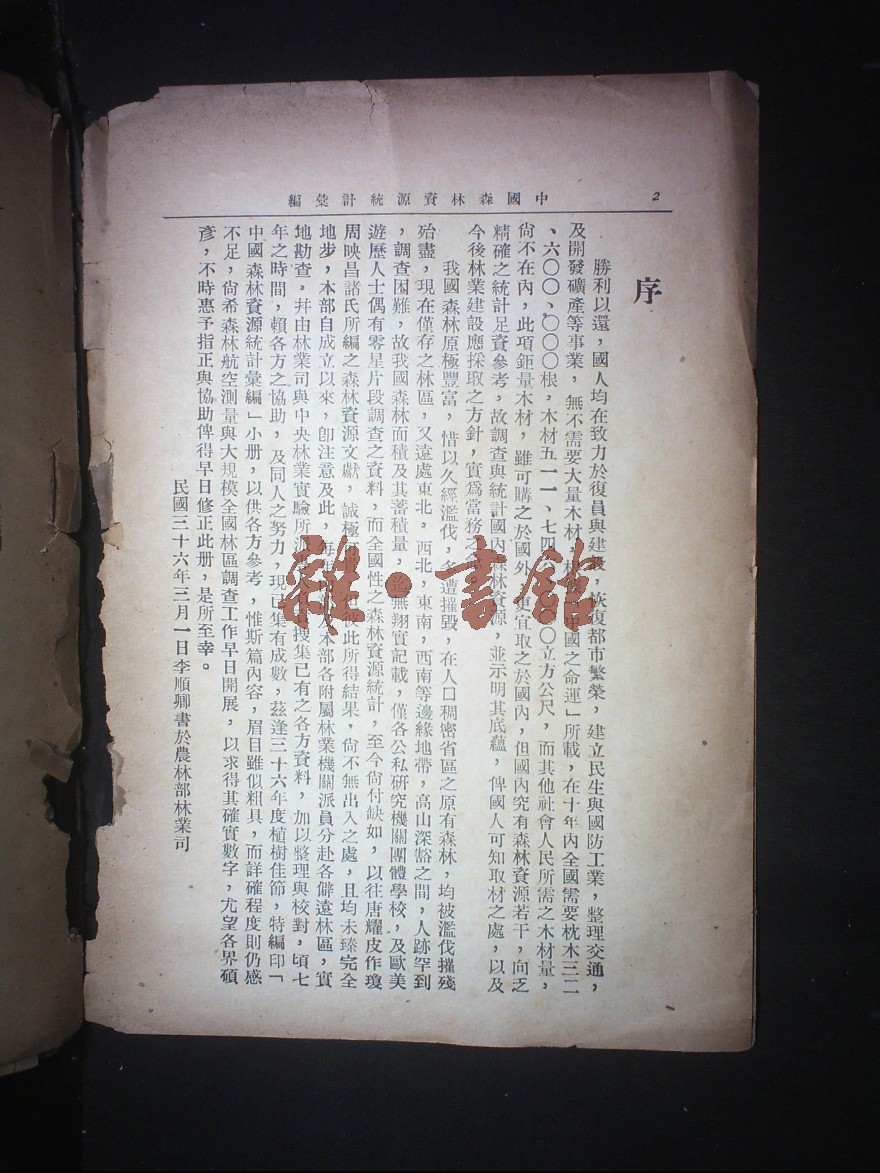 2
中國森林資源統計彙編
序
勝利以還，國人均在致力於復員與建設，恢復都市繁榮，建立民生與國防工業，整理交通，
及開發礦產等事業，無不需要大量木材，中國之命運」所載，在十年內全國需要枕木三二
、六〇〇、〇〇〇根，木材五一一、七四〇立方公尺，而其他社會人民所需之木材量，
尙不在內，此項鉅量木材，雖可購之於國外，更宜取之於國內，但國內究有森林資源若干，向乏
精確之統計足資參考，故調查與統計國內森林資源，並示明其底蘊，俾國人可知取材之處，以及
今後林業建設應採取之方針，實爲當務之
我國森林原極豐富，惜以久經濫伐，遭摧毀，在人口稠密省區之原有森林，均被濫伐摧殘
殆盡，現在僅存之林區，又遠處東北，西北，東南，西南等邊緣地帶，高山深豁之間，人跡罕到
，調查困難，故我國森林面積及其蓄積量，迄無翔實記載，僅各公私研究機關團體學校，及歐美
遊歷人士偶有零星片段調查之資料，而全國性之森林資源統計，至今尙付缺如，以往唐耀皮作瓊
周映昌諸氏所編之森林資源文獻，誠極可彼此所得結果，尙不無出入之處，且均未臻完全
地步，本部自成立以來，卽注意及此，每年本部各附屬林業機關派員分赴各僻遠林區，實
地勘查，幷由林業司與中央林業實驗所派搜集已有之各方資料，加以整理與校對，頃七
年之時間，賴各方之協助，及同人之努力，現已集有成數，茲逢三十六年度植樹佳節，特編印「
中國森林資源統計彙編」小册，以供各方參考，惟斯篇內容，眉目雖似粗具，而詳確程度則仍感
不足，尙希森林航空測量與大規模全國林區調查工作早日開展，以求得其確實數字，尤望各界碩
彥，不時惠予指正與協助俾得早日修正此册，是所至幸。
民國三十六年三月一日李順卿書於農林部林業司
雜·書館